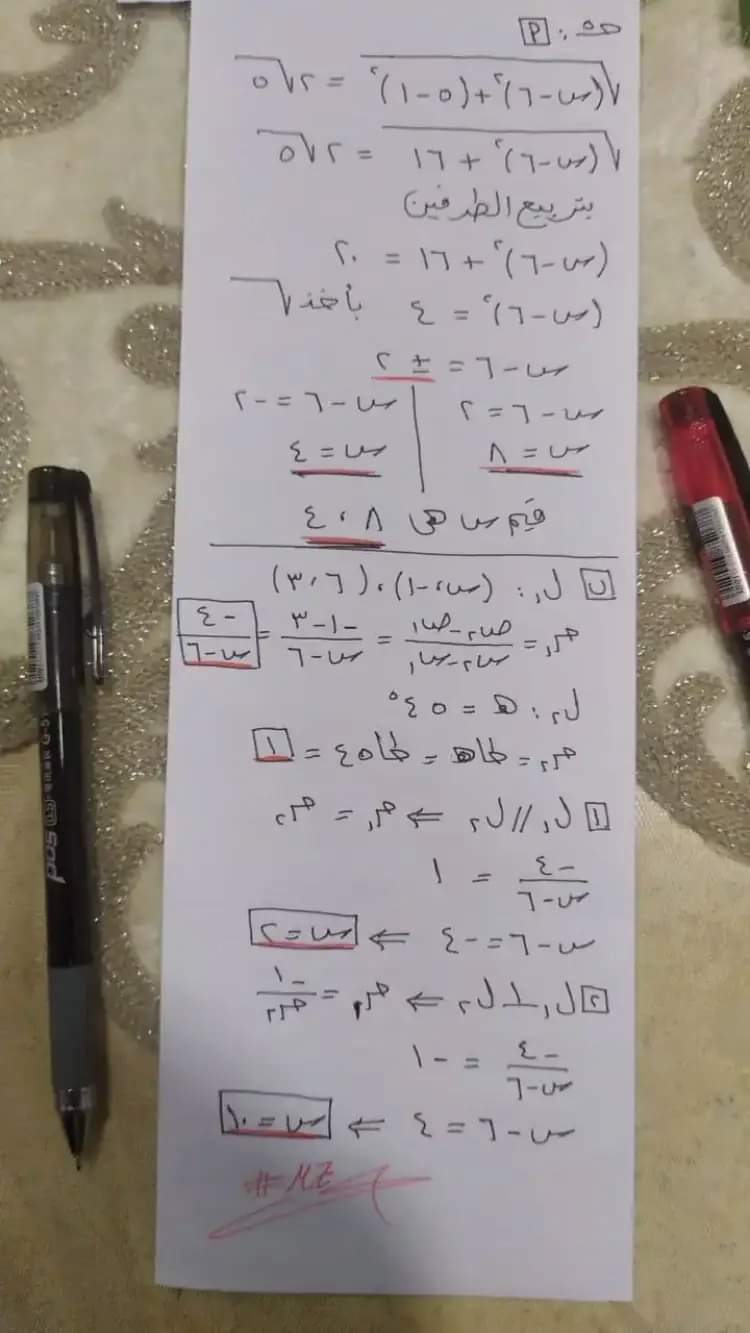 حله: [أ]
√(س-٦)²+(٥-١)² = ٢√٥
√(س-٦)² + ١٦ = ٢√٥
بتربيع الطرفين
(س-٦)² + ١٦ = ٢٠
(س-٦)² = ٤ بأخذ √
س-٦ = ± ٢
س-٦ = ٢ | س-٦ = -٢
س = ٨ | س = ٤
قيم س هى ٨ ، ٤
[ب] ل١: (س، -١)، (٦، ٣)
م١ = (ص٢-ص١)/(س٢-س١) = (-١-٣)/(س-٦) = -٤/(س-٦)
ل٢: هـ = ٤٥°
م٢ = طاهـ = طا٤٥ = ١
[١] ل١ // ل٢ ⇐ م١ = م٢
-٤/(س-٦) = ١
س-٦ = -٤ ⇐ س = ٢
[٢] ل١ ⊥ ل٢ ⇐ م١ = -١/م٢
-٤/(س-٦) = -١
س-٦ = ٤ ⇐ س = ١٠
# MZ